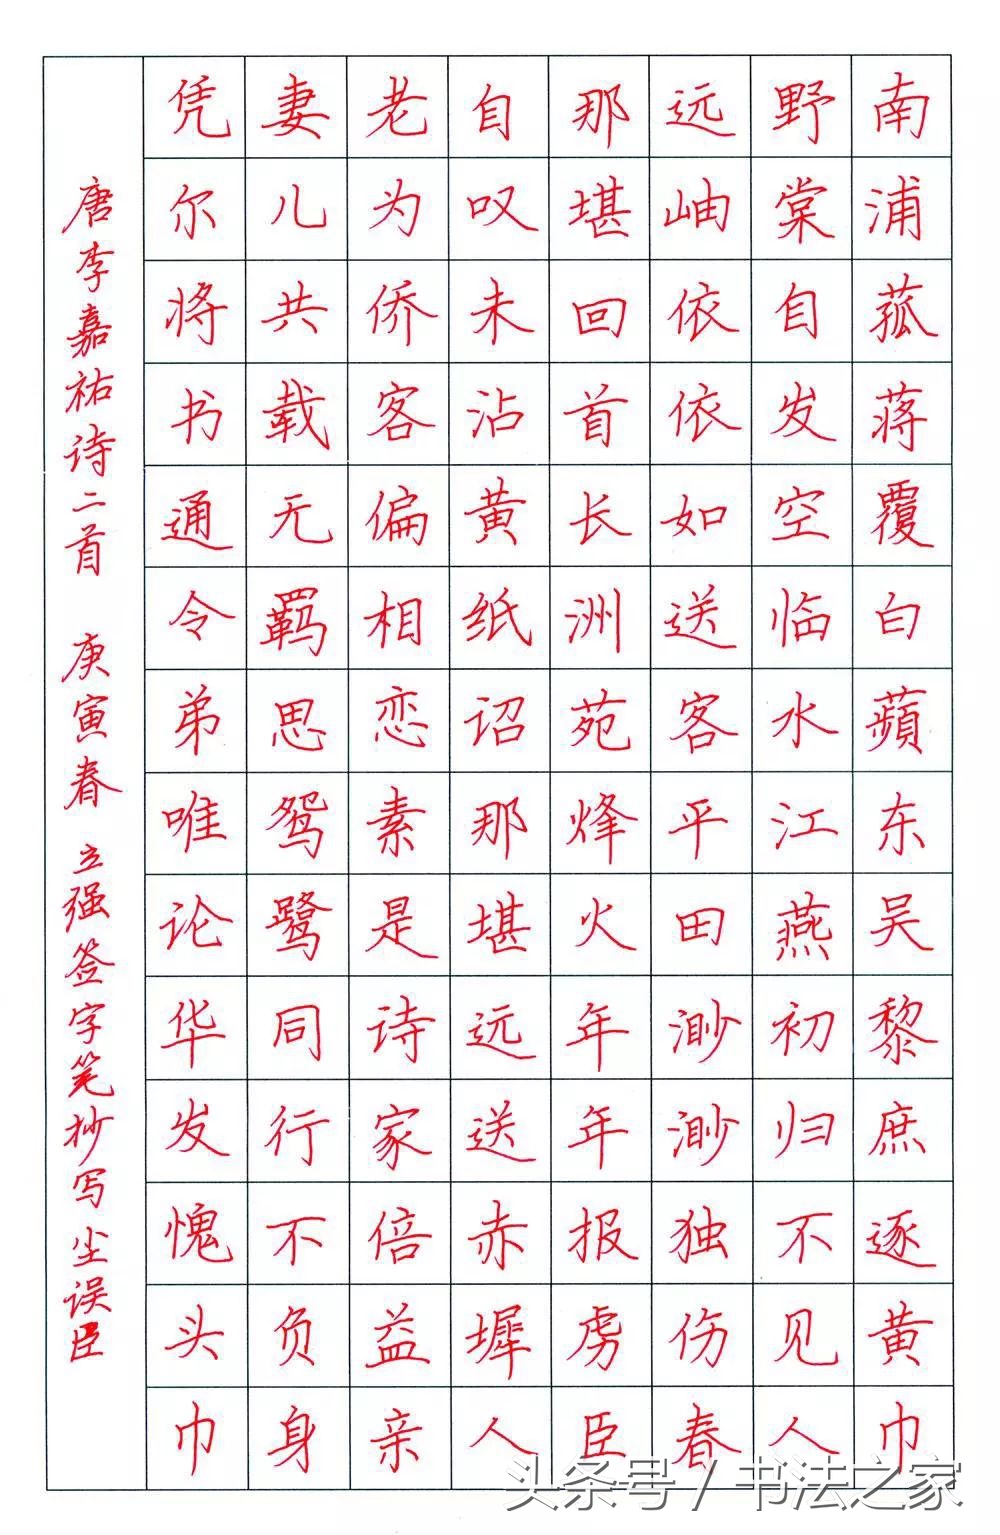 南浦菰蒋覆白蘋东吴黎庶逐黄巾
野棠自发空临水江燕初归不见人
远岫依依如送客平田渺渺独伤春
那堪回首长洲苑烽火年年报虏臣
自叹未沾黄纸诏那堪远送赤墀人
老为侨客偏相恋素是诗家倍益亲
妻儿共载无羁思鸳鹭同行不负身
凭尔将书通令弟唯论华发愧头巾
唐李嘉祐诗二首 庚寅春 立强签字笔抄写 尘误臣
头条号 / 书法之家